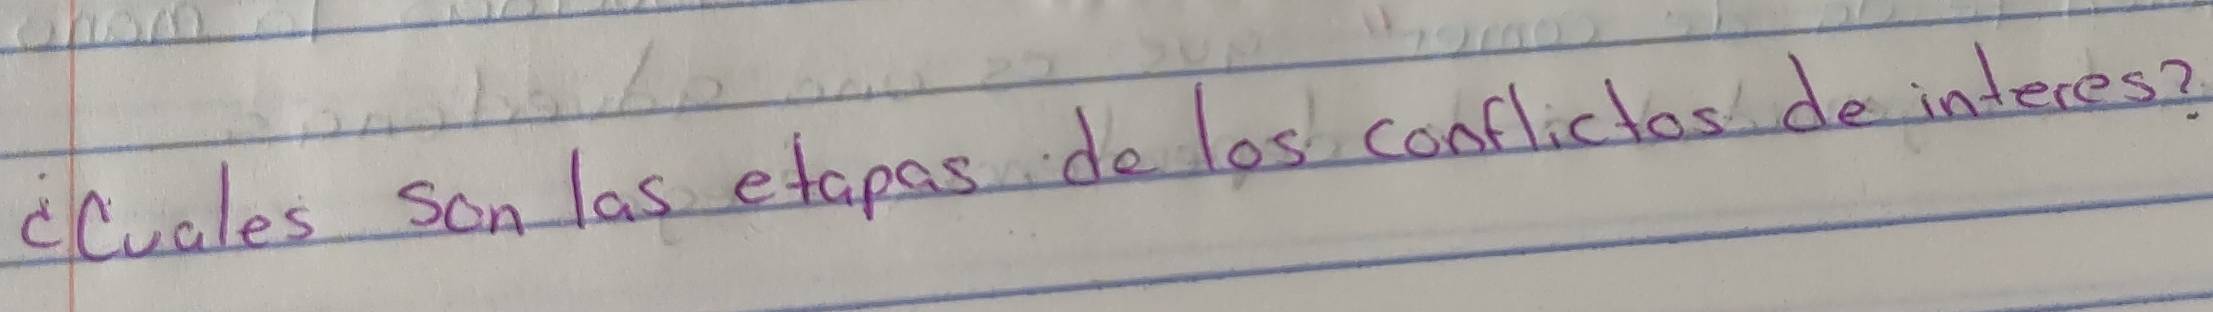 ¿Cuales son las etapas de los conflictos de interes?